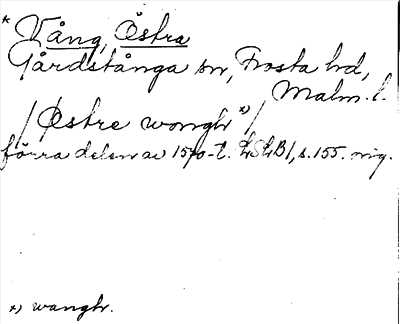 * Vång, Östra
Gårdstånga sn, Frosta hd,
Malm. l.
/Østre wongh *)/
förra delen av 1570-t. LSLB1, s. 155. orig.
*) wangh.